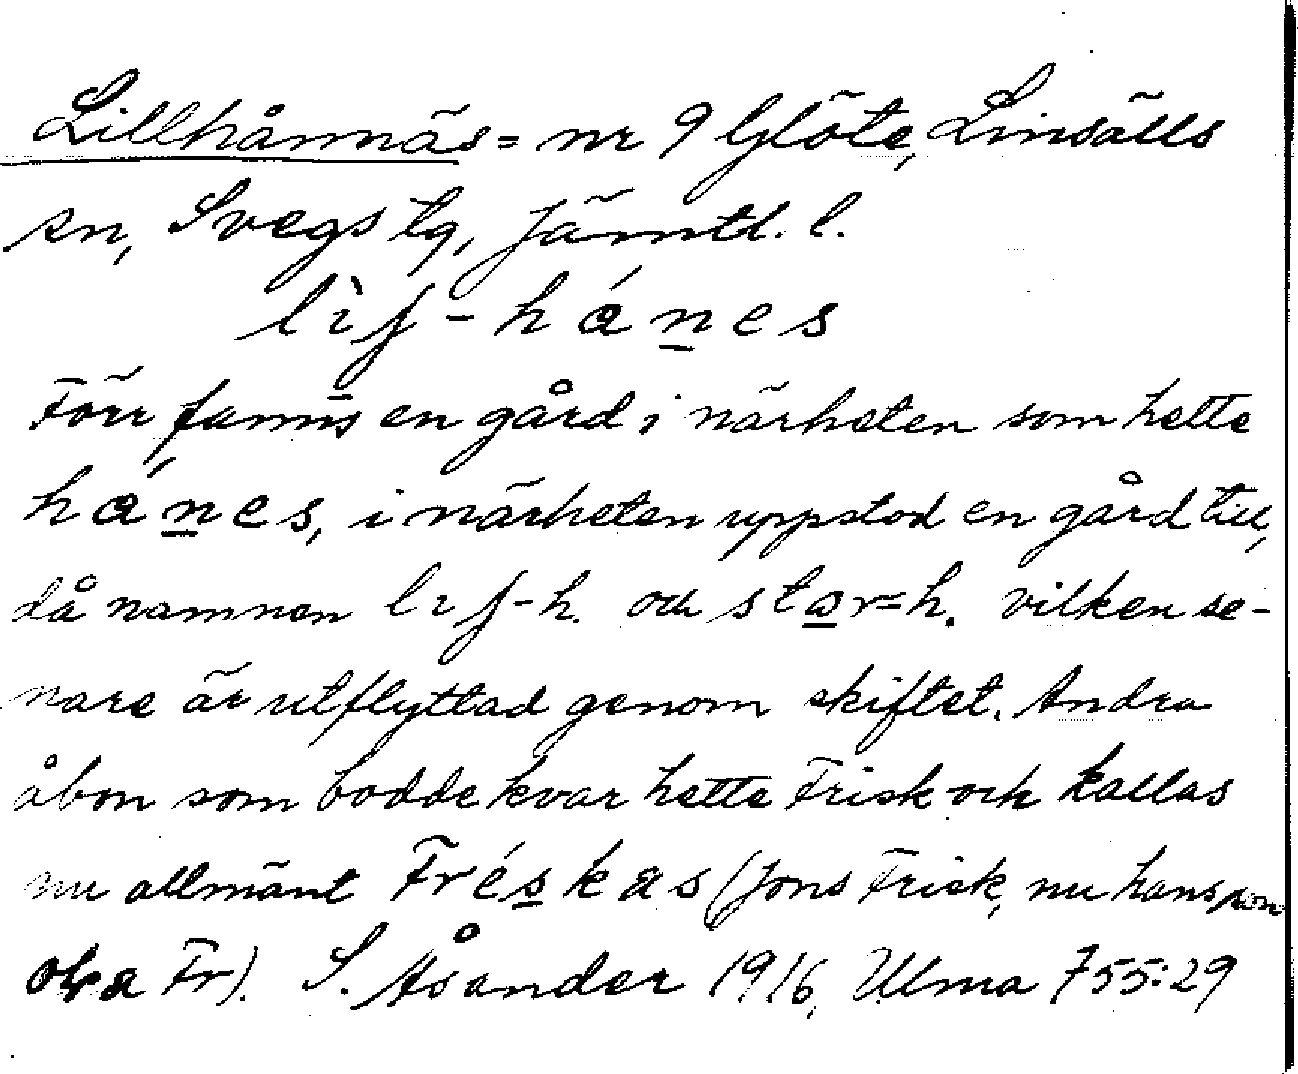 Lillhånnäs = nr 9 Glöte, Linsälls
sn, Svegs tg, Jämtl. l.
lìʃ-hánes
Förr fanns en gård i närheten som hette
hánes, i närheten uppstod en gård till,
då namnen lıʃ-h. och stor=h. vilken se-
nare är utflyttad genom skiftet. Andra
åbon som bodde kvar hette Frisk och kallas
nu allmänt Fréskas (Jons Frisk, nu hans son
Fr). S. Åsander 1916, Ulma 755:29